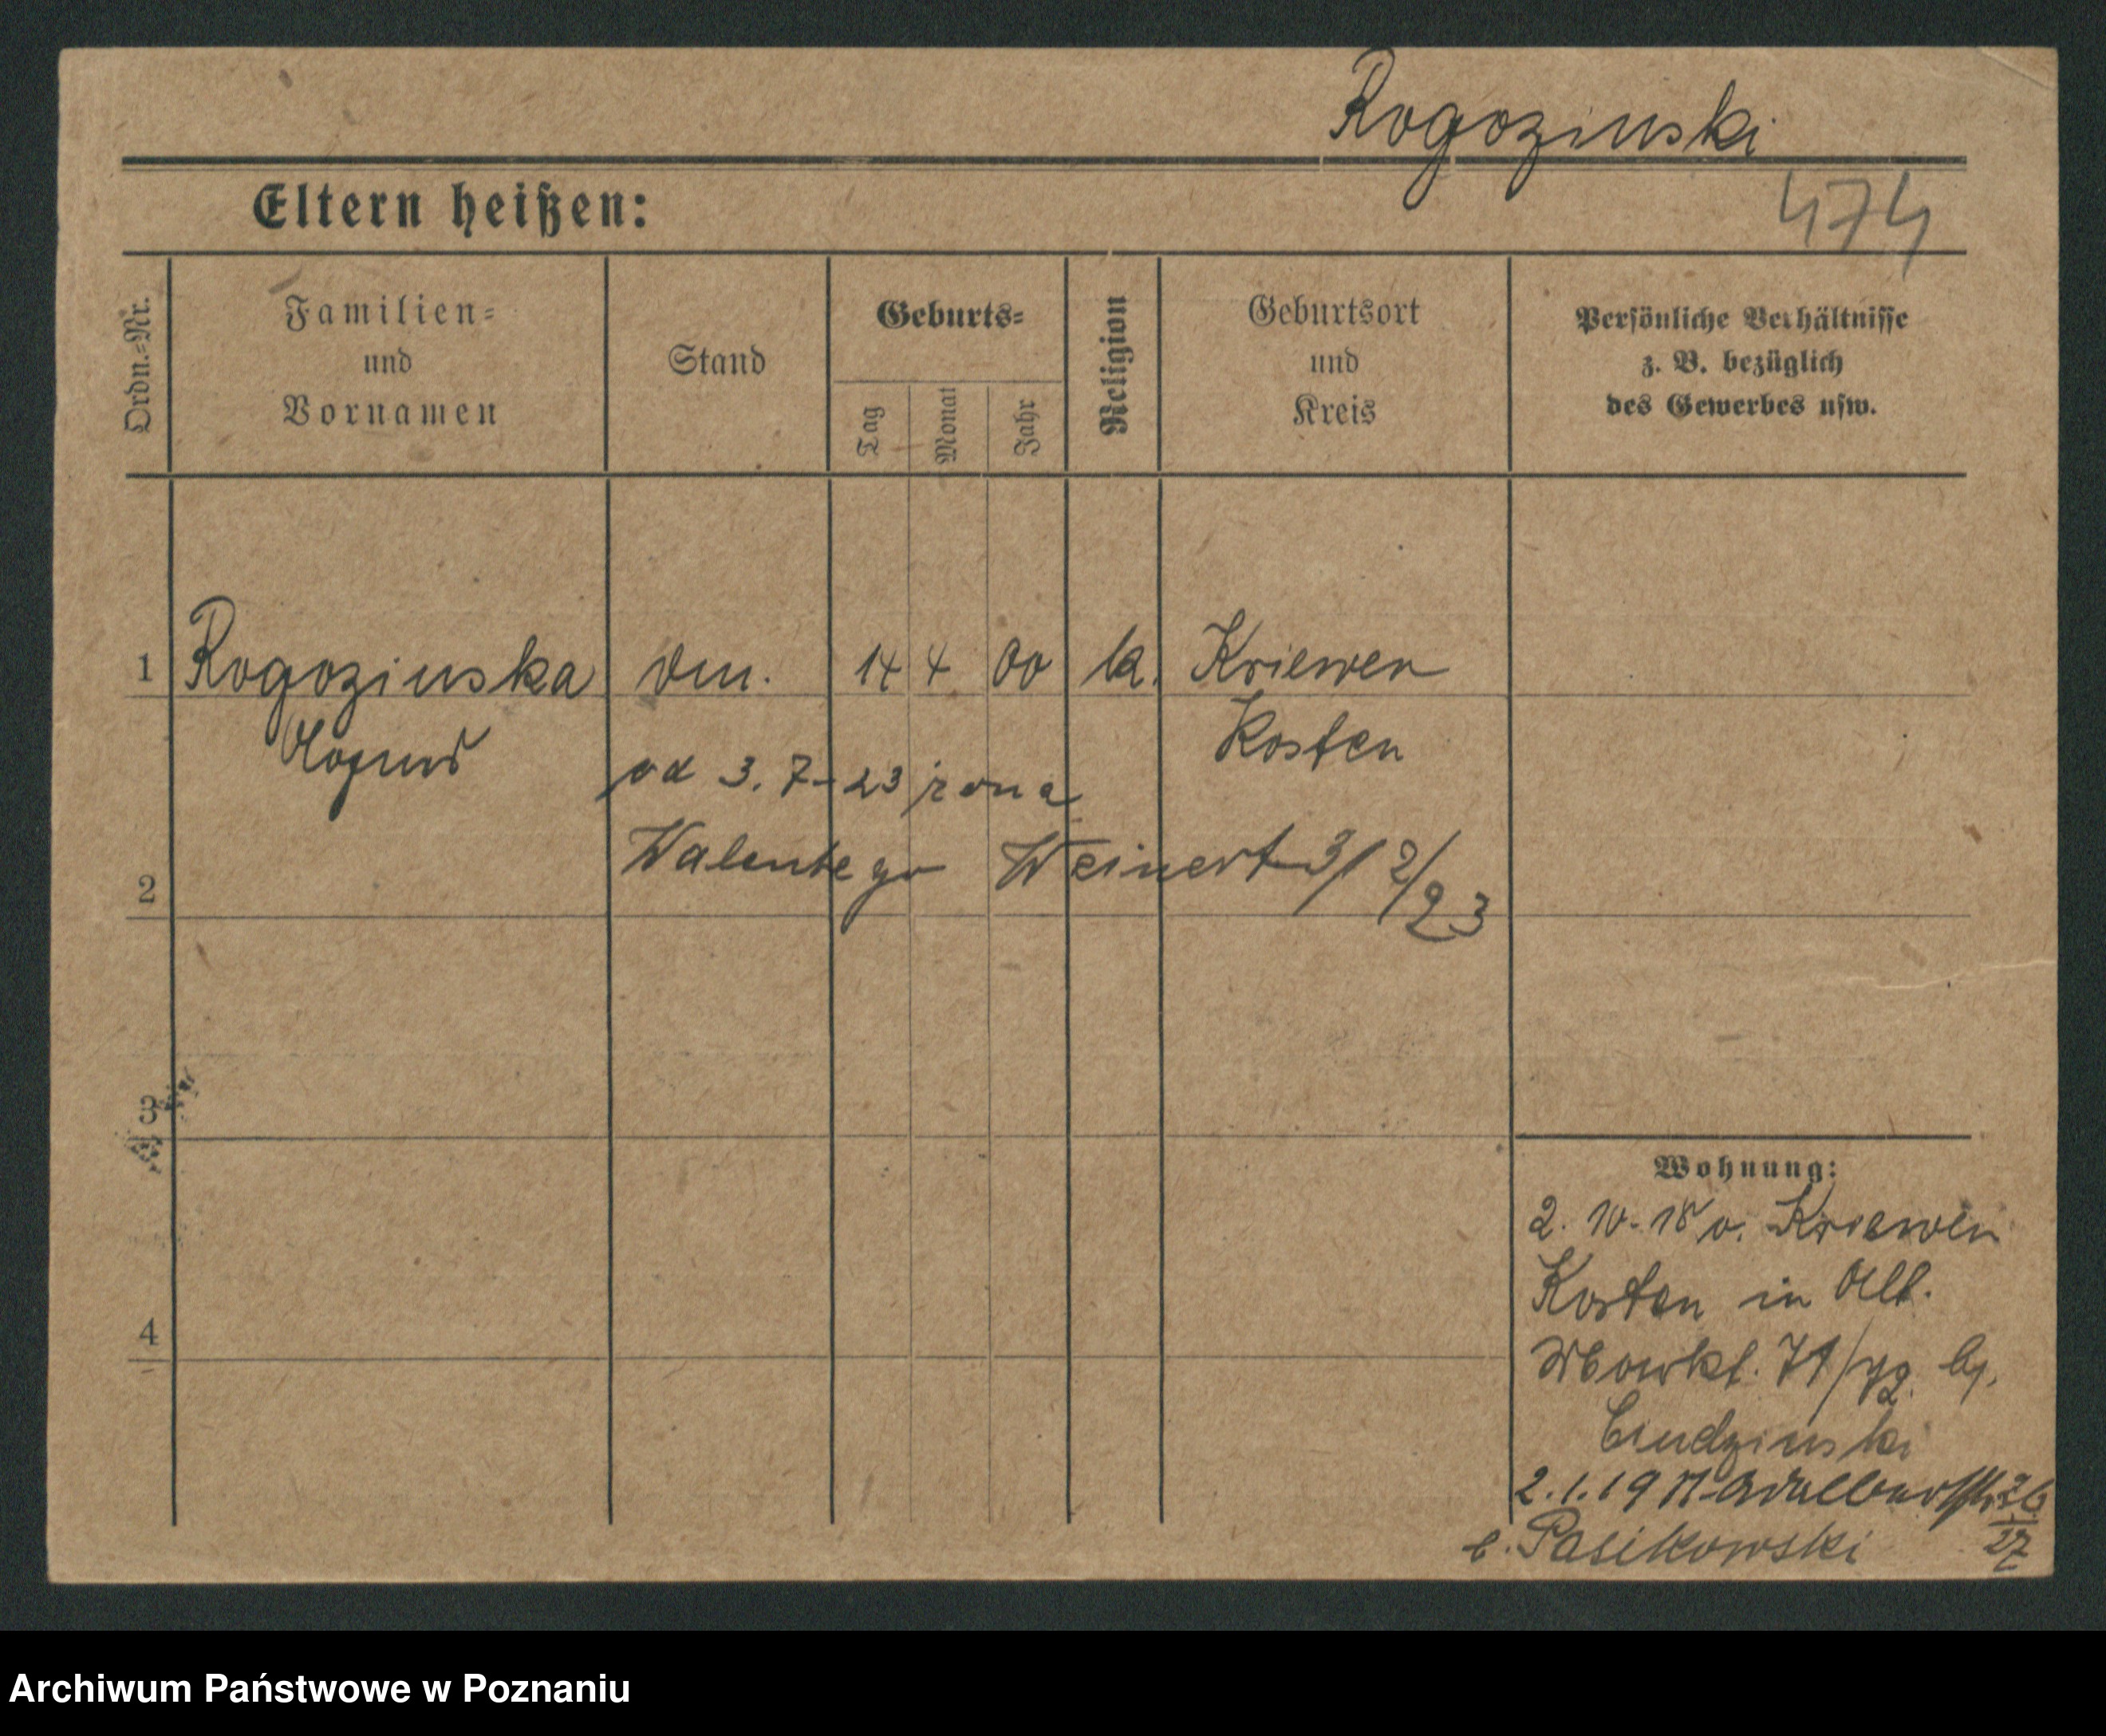 Rogozinski
474
Eltern heißen:
Ordn.=Nr.
Familien=
und
Vornamen
Stand
Geburts=
Tag
Monat
Jahr
Religion
Geburtsort
und
Kreis
Persönliche Verhältnisse
z. B. bezüglich
des Gewerbes usw.
1 Rogozinska 14 4 00 k. Kriewen
Kosten
od 3. 7-23 żona
Walentego Weinert 3/ 2/23
2
3
4
Wohnung:
2. 10. 18 v. Kriewen
Kosten in Alt.
Markt. 71/72. bj.
2.1.19 Adalbertstr 26/27
b. Pasikowski
Archiwum Państwowe w Poznaniu